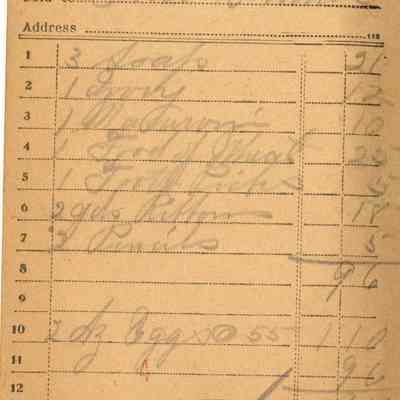 Sold to
Address 118
1 3 Soaps 21
2 1 12
3 1 Macaroni 10
4 1 Wheat 25
5 1 Tooth Picks 5
6 2 yds Ribbon 18
7 3 Pencils 5
8 96
9
10 2 dz Eggs @ 55 1 10
11 96
12